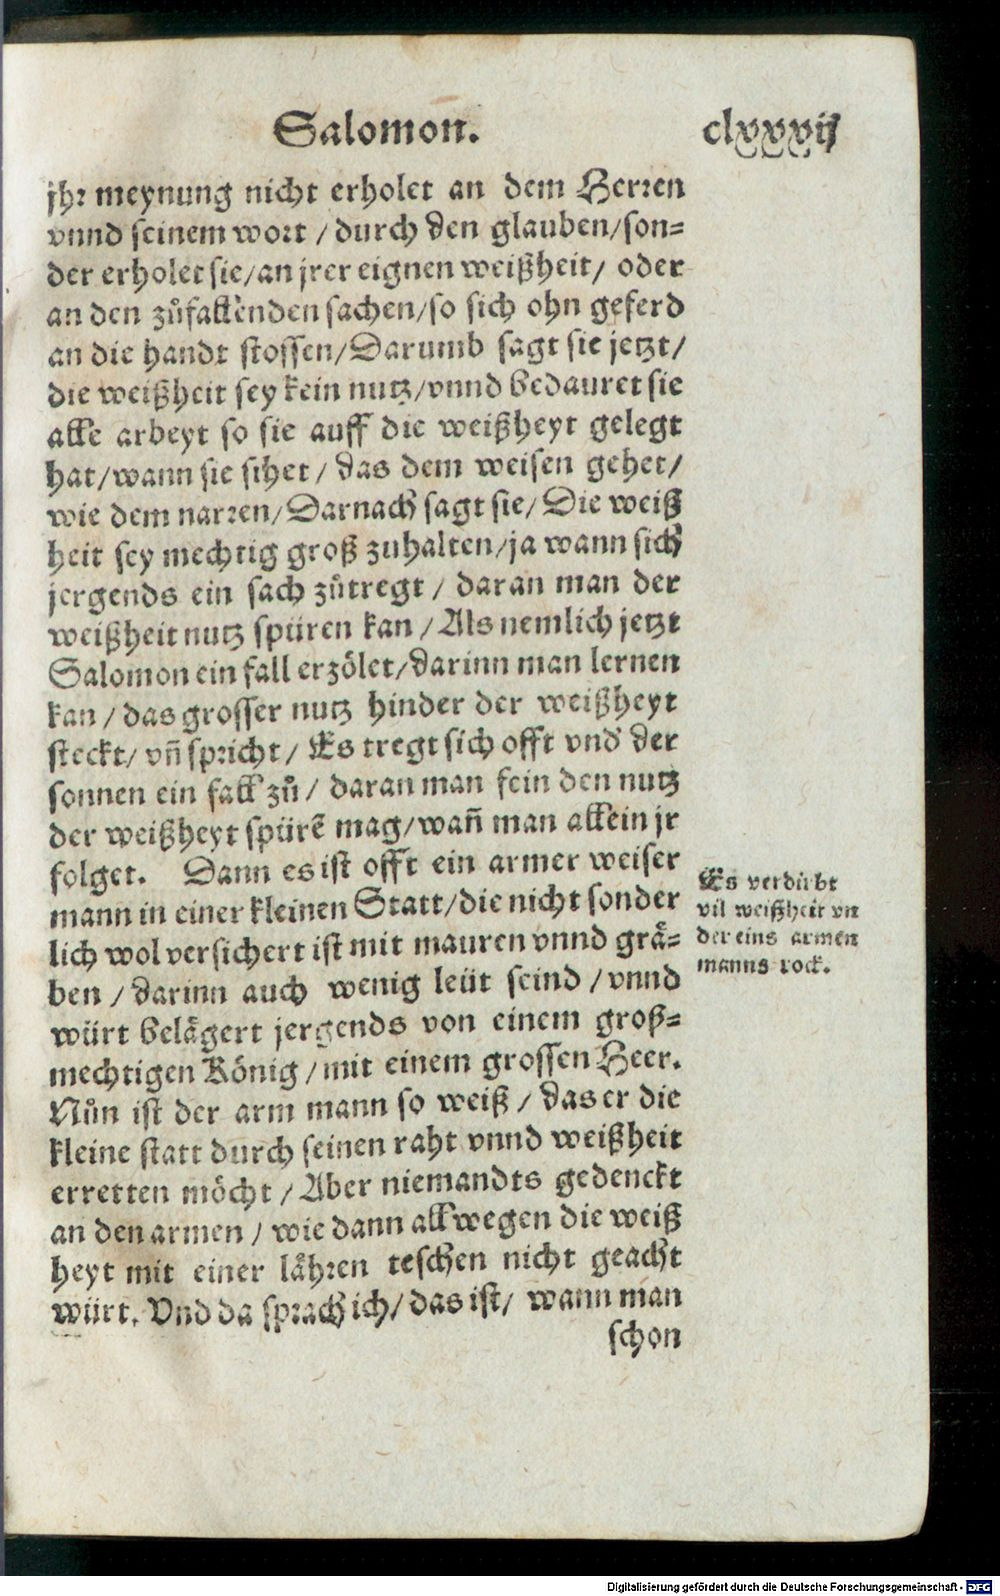 Salomon. clxxxvij
jhr meynung nicht erholet an dem Herren
vnnd seinem wort / durch den glauben/son=
der erholet sie/an jrer eignen weißheit/ oder
an den zůfallenden sachen/so sich ohn geferd
an die handt stossen/Darumb sagt sie jetzt/
die weißheit sey kein nutz/vnnd bedauret sie
alle arbeyt so sie auff die weißheyt gelegt
hat/wann sie sihet/ das dem weisen gehet/
wie dem narren/Darnach sagt sie/ Die weiß
heit sey mechtig groß zuhalten/ja wann sich
jergends ein sach zůtregt / daran man der
weißheit nutz spüren kan / Als nemlich jetzt
Salomon ein fall erzölet/darinn man lernen
kan / das grosser nutz hinder der weißheyt
steckt/ vñ spricht/ Es tregt sich offt vnd der
sonnen ein fall zů/ daran man fein den nutz
der weißheyt spürē mag/wañ man allein jr
folget. Dann es ist offt ein armer weiser
mann in einer kleinen Statt/die nicht sonder
lich wol versichert ist mit mauren vnnd grä=
ben / darinn auch wenig leüt seind / vnnd
würt belägert jergends von einem groß=
mechtigen König / mit einem grossen Heer.
Nůn ist der arm mann so weiß / das er die
kleine statt durch seinen raht vnnd weißheit
erretten möcht / Aber niemandts gedenckt
an den armen / wie dann allwegen die weiß
heyt mit einer lähren teschen nicht geacht
würt. Vnd da sprach ich/ das ist/ wann man
schon
Es verdirbt
vil weißheit vn
der eins armen
manns rock.
Digitalisierung gefördert durch die Deutsche Forschungsgemeinschaft - DFG